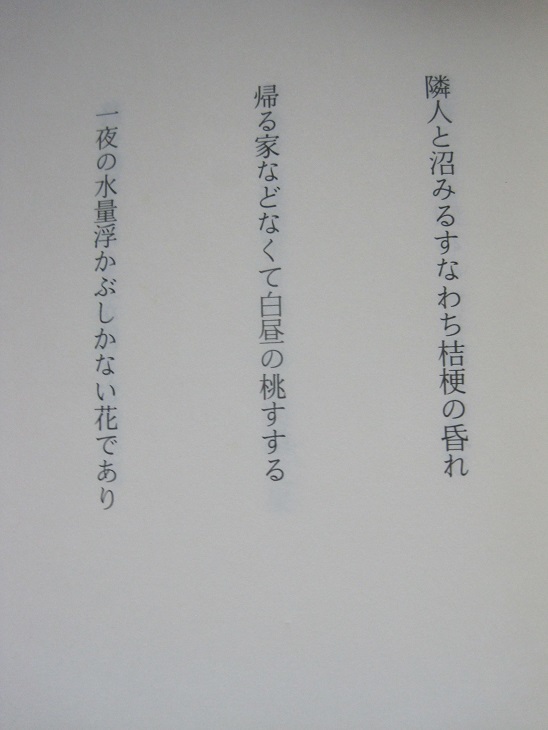 隣人と沼みるすなわち桔梗の昏れ
帰る家などなくて白昼の桃すする
一夜の水量浮かぶしかない花であり